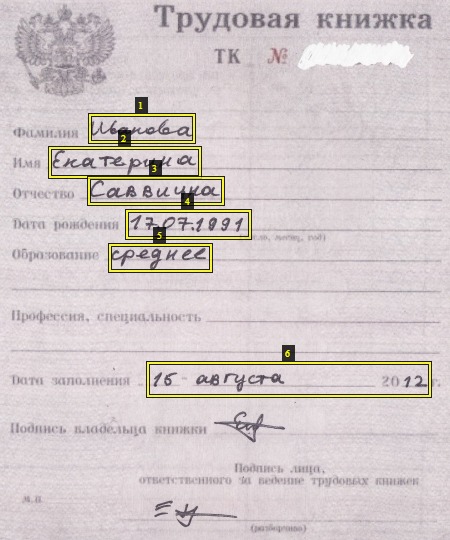 Трудовая книжка
ТК №
Фамилия Иванова
Имя Екатерина
Отчество Саввична
Дата рождения 17.07.1991
(число, месяц, год)
Образование среднее
Профессия, специальность
Дата заполнения 15 августа 2012 г.
Подпись владельца книжки
Подпись лица,
ответственного за ведение трудовых книжек
М.П.
(разборчиво)
1
2
3
4
5
6